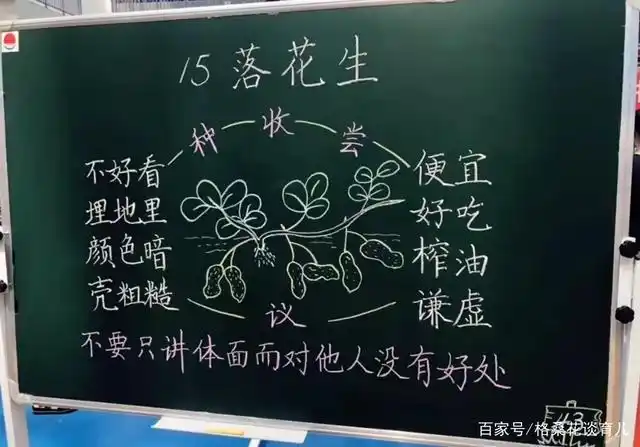 15 落花生
种 收 尝
不好看
埋地里
颜色暗
壳粗糙
便宜
好吃
榨油
谦虚
议
不要只讲体面而对他人没有好处
43
百家号/格桑花谈育儿